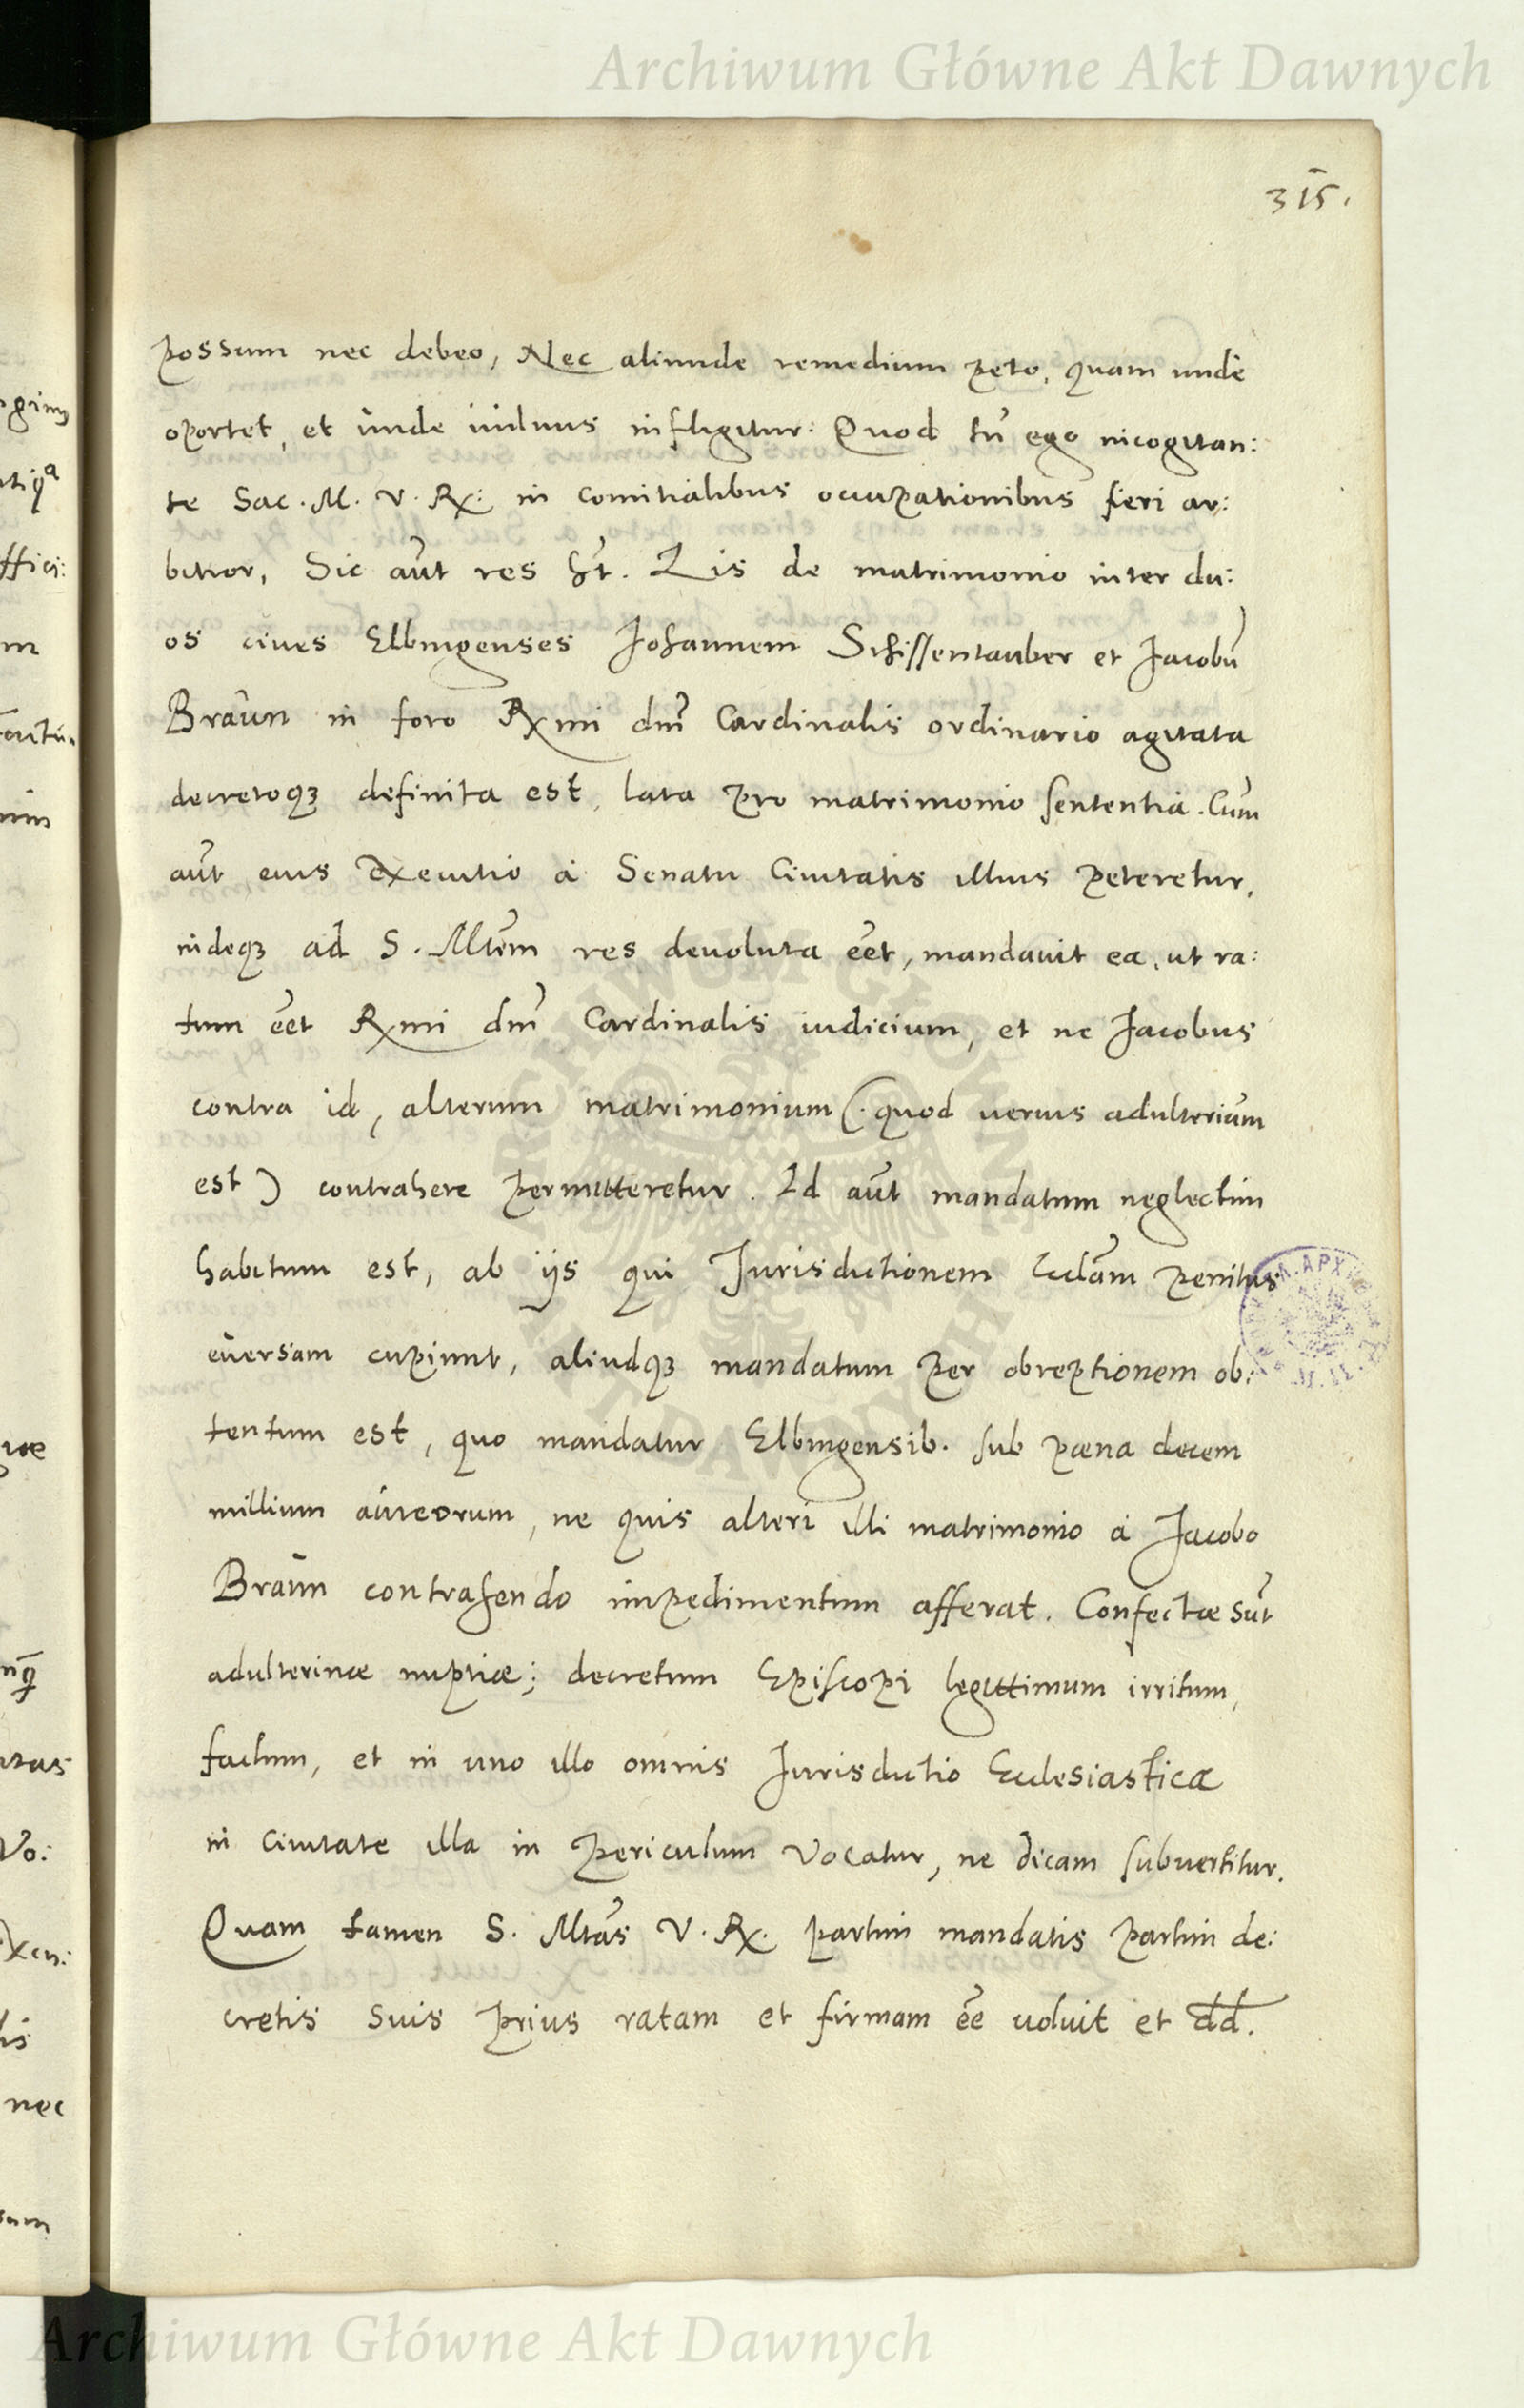 Archiwum Główne Akt Dawnych
315.
possum nec debeo, Nec aliunde remedium peto, quam unde
oportet, et unde uulnus infligitur: Quod tn̄ ego incogitan:
te Sac. M. V. Rx: in comitialibus occupationibus fieri ar:
bitror, Sic aūt res ht̄. Lis de matrimonio inter du:
os ciues Elbingenses Johannem Schissentauber et Jacobū
Braun in foro Rxmi dnī Cardinalis ordinario agitata
decretoqȝ definita est, lata pro matrimonio sententia. Cum
aūt eius executio a Senatu Ciuitatis illius peteretur,
indeqȝ ad S. Mtēm res deuoluta eēt, mandauit ea, ut ra:
tum eēt Rxmi dnī Cardinalis iudicium, et ne Jacobus
contra id, alterum matrimonium (. quod uerius adulterium
est) contrahere permitteretur. Id aūt mandatum neglectim
habitum est, ab ijs qui Jurisdictionem Ecclām penitus
euersam cupiunt, aliudqȝ mandatum per obreptionem ob:
tentum est, quo mandatur Elbingensib. sub pœna decem
millium aureorum, ne quis alteri illi matrimonio a Jacobo
Braun contrahendo impedimentum afferat. Confectæ sūt
adulterinæ nuptiæ; decretum Episcopi legittimum irritum,
factum, et in uno illo omnis Jurisdictio Ecclesiastica
in ciuitate illa in periculum vocatur, ne dicam subuertitur.
Quam tamen S. Mtās V. Rx. partim mandatis partim de:
cretis suis prius ratam et firmam eē uoluit et dd.
Archiwum Główne Akt Dawnych